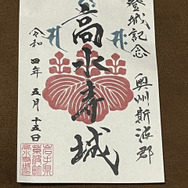 登城記念
奥州斯波郡
高水寺城
令和
四年五月十五日